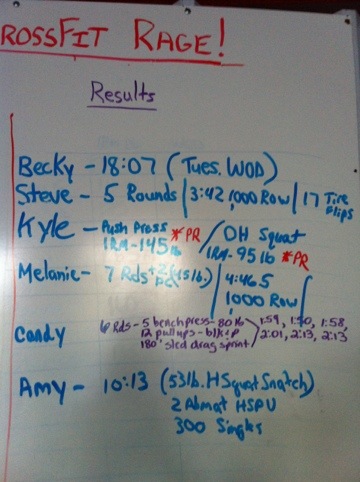 ROSSFIT RAGE!
Results
Becky - 18:07 (Tues. WOD)
Steve - 5 Rounds / 3:42 1,000 Row / 17 Tire Flips
Kyle - Push Press *PR / OH Squat
1RM-145 lb / 1RM-95 lb *PR
Melanie - 7 Rds (15 lb.) / 4:46.5
1,000 Row
Candy 6 Rds - 5 bench press - 80 lb 1:59, 1:50, 1:58,
12 pullups - b/kip 2:01, 2:13, 2:13
180' sled drag sprint
Amy - 10:13 (53 lb. H Squat Snatch)
2 Abmat HSPU
300 Singles